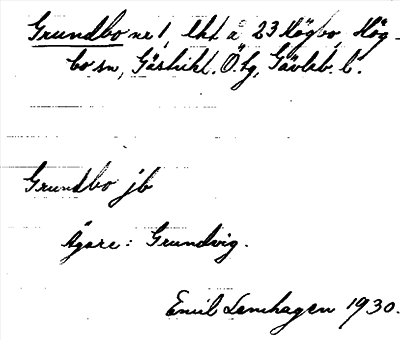 Grundbo nr 1, lht å 23 Högbo, Hög-
bo sn, Gästrikl. Ö. tg, Gävleb. l.
Grundbo jb
Ägare: Grundvig.
Emil Lenhagen 1930.